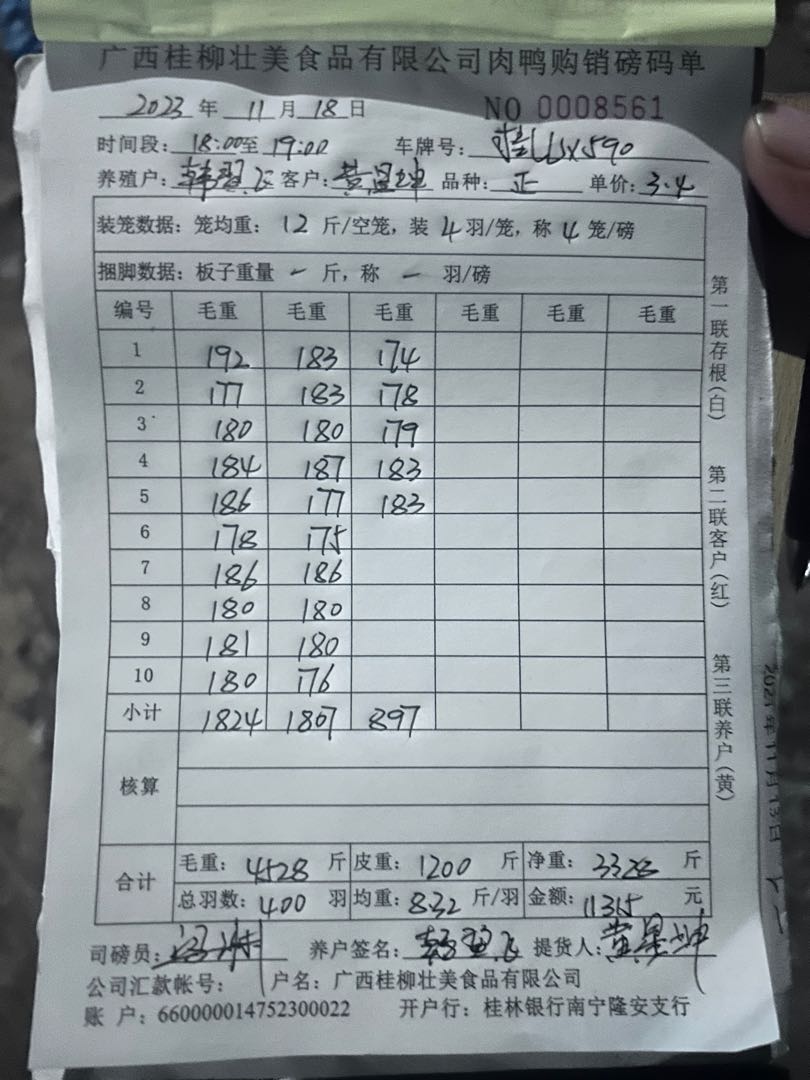 广西桂柳壮美食品有限公司肉鸭购销磅码单
2023 年 11 月 18 日 NO 0008561
时间段: 18:00至 19:00 车牌号: 590
养殖户: 韩翌飞 客户: 黄星坤 品种: 正 单价: 3.4
装笼数据: 笼均重: 12 斤/空笼, 装 4 羽/笼, 称 4 笼/磅
捆脚数据: 板子重量 一 斤, 称 一 羽/磅
编号 毛重 毛重 毛重 毛重 毛重 毛重
1 192 183 174
2 177 183 178
3 180 180 179
4 184 187 183
5 186 177 183
6 178 175
7 186 186
8 180 180
9 181 180
10 180 176
小计 1824 1807 897
核算
合计 毛重: 4528 斤 皮重: 1200 斤 净重: 3328 斤
总羽数: 400 羽 均重: 8.32 斤/羽 金额: 11315 元
司磅员: 养户签名: 韩翌飞 提货人: 黄星坤
公司汇款帐号: 户名: 广西桂柳壮美食品有限公司
账 户: 660000014752300022 开户行: 桂林银行南宁隆安支行
第一联存根(白)
第二联客户(红)
第三联养户(黄)